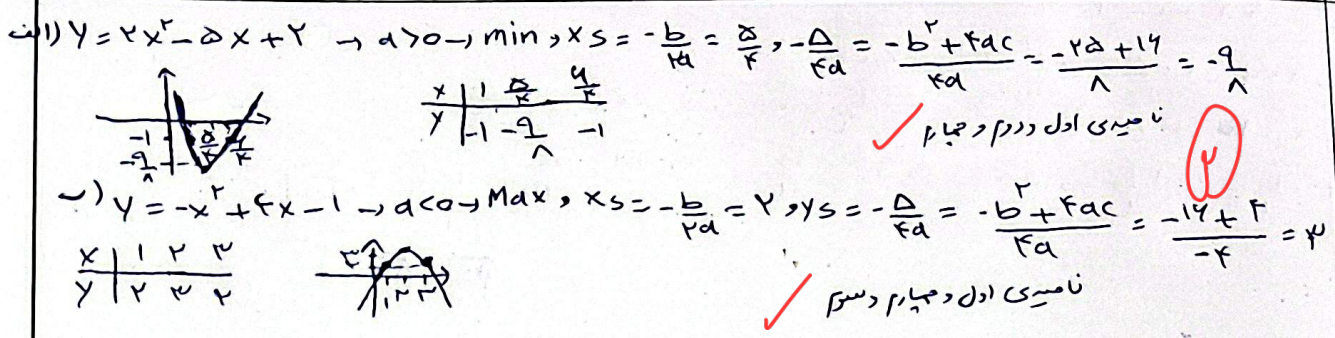 الف) y = ۲x² - ۵x + ۲ → a>0 → min , xs = -b/۲a = ۵/۴ , -Δ/۴a = (-b² + ۴ac)/۴a = (-۲۵ + ۱۶)/۸ = -۹/۸
x | ۱ ۵/۴ ۶/۴
y | -۱ -۹/۸ -۱
-۱
-۹/۸
۵/۴ ۶/۴
ناحیه‌ی اول و دوم و چهارم
۲
ب) y = -x² + ۴x - ۱ → a<0 → Max , xs = -b/۲a = ۲ , ys = -Δ/۴a = (-b² + ۴ac)/۴a = (-۱۶ + ۴)/-۴ = ۳
x | ۱ ۲ ۳
y | ۲ ۳ ۲
۱ ۲ ۳
ناحیه‌ی اول و چهارم و سوم